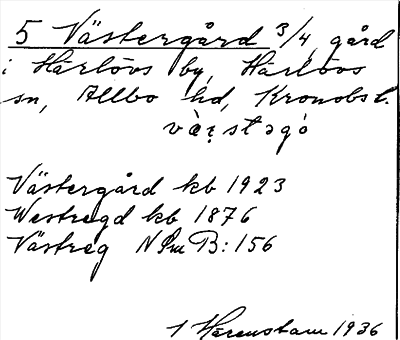 5 Västergård 3/4, gård
i Härlövs by, Härlövs
sn, Allbo hd, Kronobs l.
Västergård kb 1923
Westregd kb 1876
Västreg NSm B: 156
1 Harenstam 1936